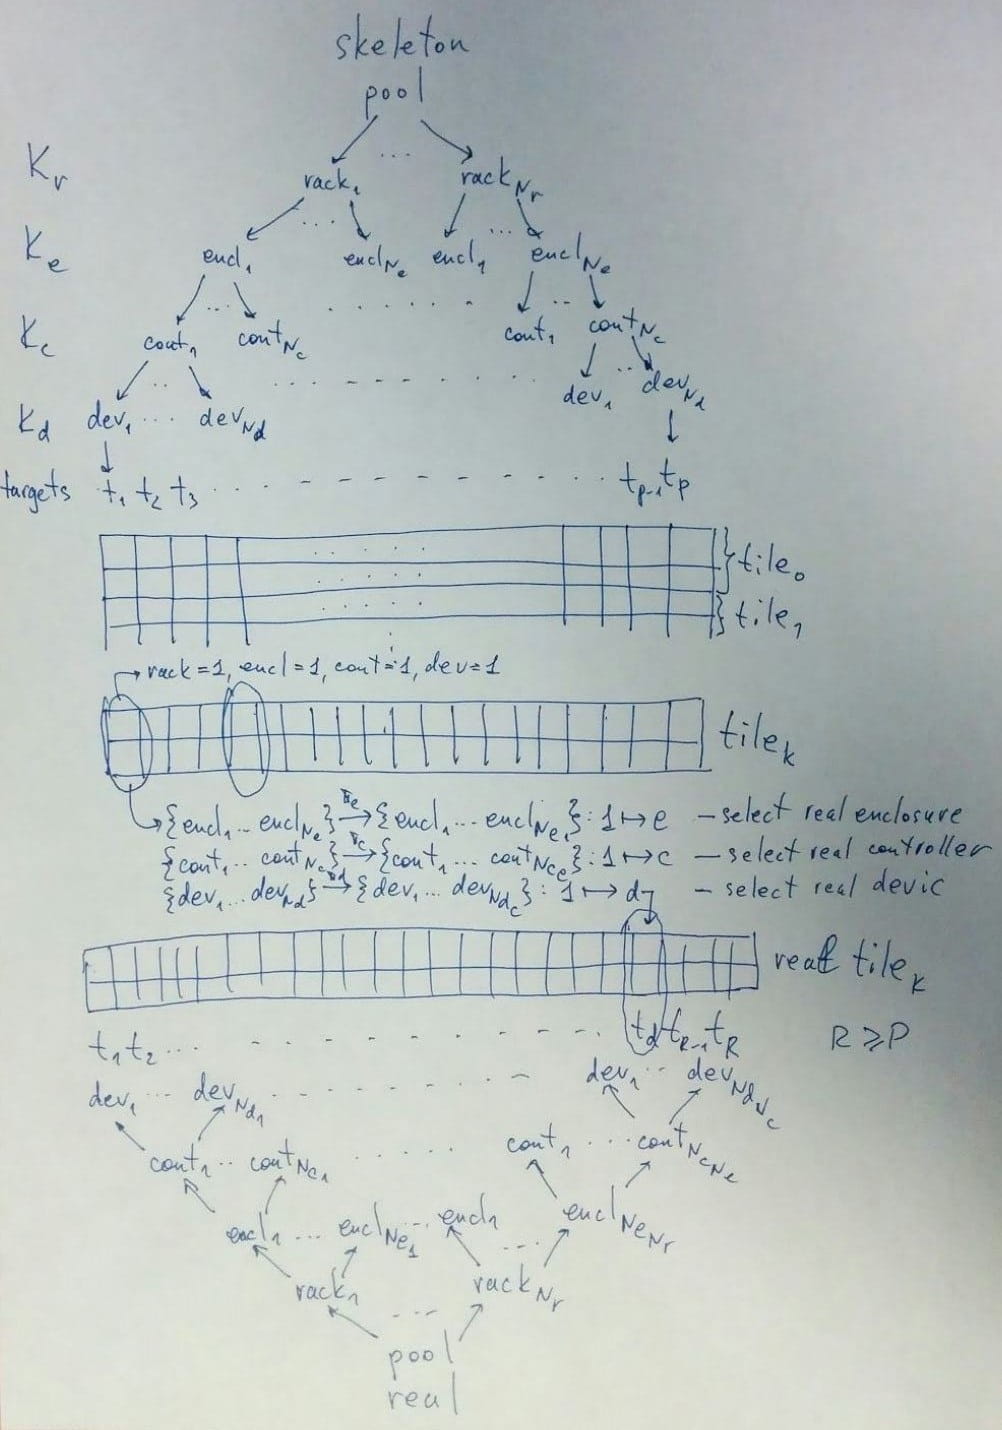 skeleton
pool
K_r rack_1 ... rack_Nr
K_e encl_1 ... encl_Ne encl_1 ... encl_Ne
K_c cont_1 ... cont_Nc ....... cont_1 ... cont_Nc
K_d dev_1 ... dev_Nd ....... dev_1 ... dev_Nd
targets t_1 t_2 t_3 ....... t_P-1 t_P
} tile_0
} tile_1
rack=1, encl=1, cont=1, dev=1
tile_k
{encl_1 ... encl_Ne} → {encl_1 ... encl_Ne_1} : 1 ↦ e - select real enclosure
{cont_1 ... cont_Nc} → {cont_1 ... cont_Nc_e} : 1 ↦ c - select real controller
{dev_1 ... dev_Nd} → {dev_1 ... dev_Nd_c} : 1 ↦ d - select real devic
real tile_k
t_1 t_2 ... ....... t_d t_R-1 t_R R ⩾ P
dev_1 ... dev_Nd_1 ....... dev_1 ... dev_Nd_Nc
cont_1 ... cont_Nc_1 ....... cont_1 ... cont_Nc_Ne
encl_1 ... encl_Ne_1 ... encl_1 ... encl_Ne_Nr
rack_1 ... rack_Nr
pool
real